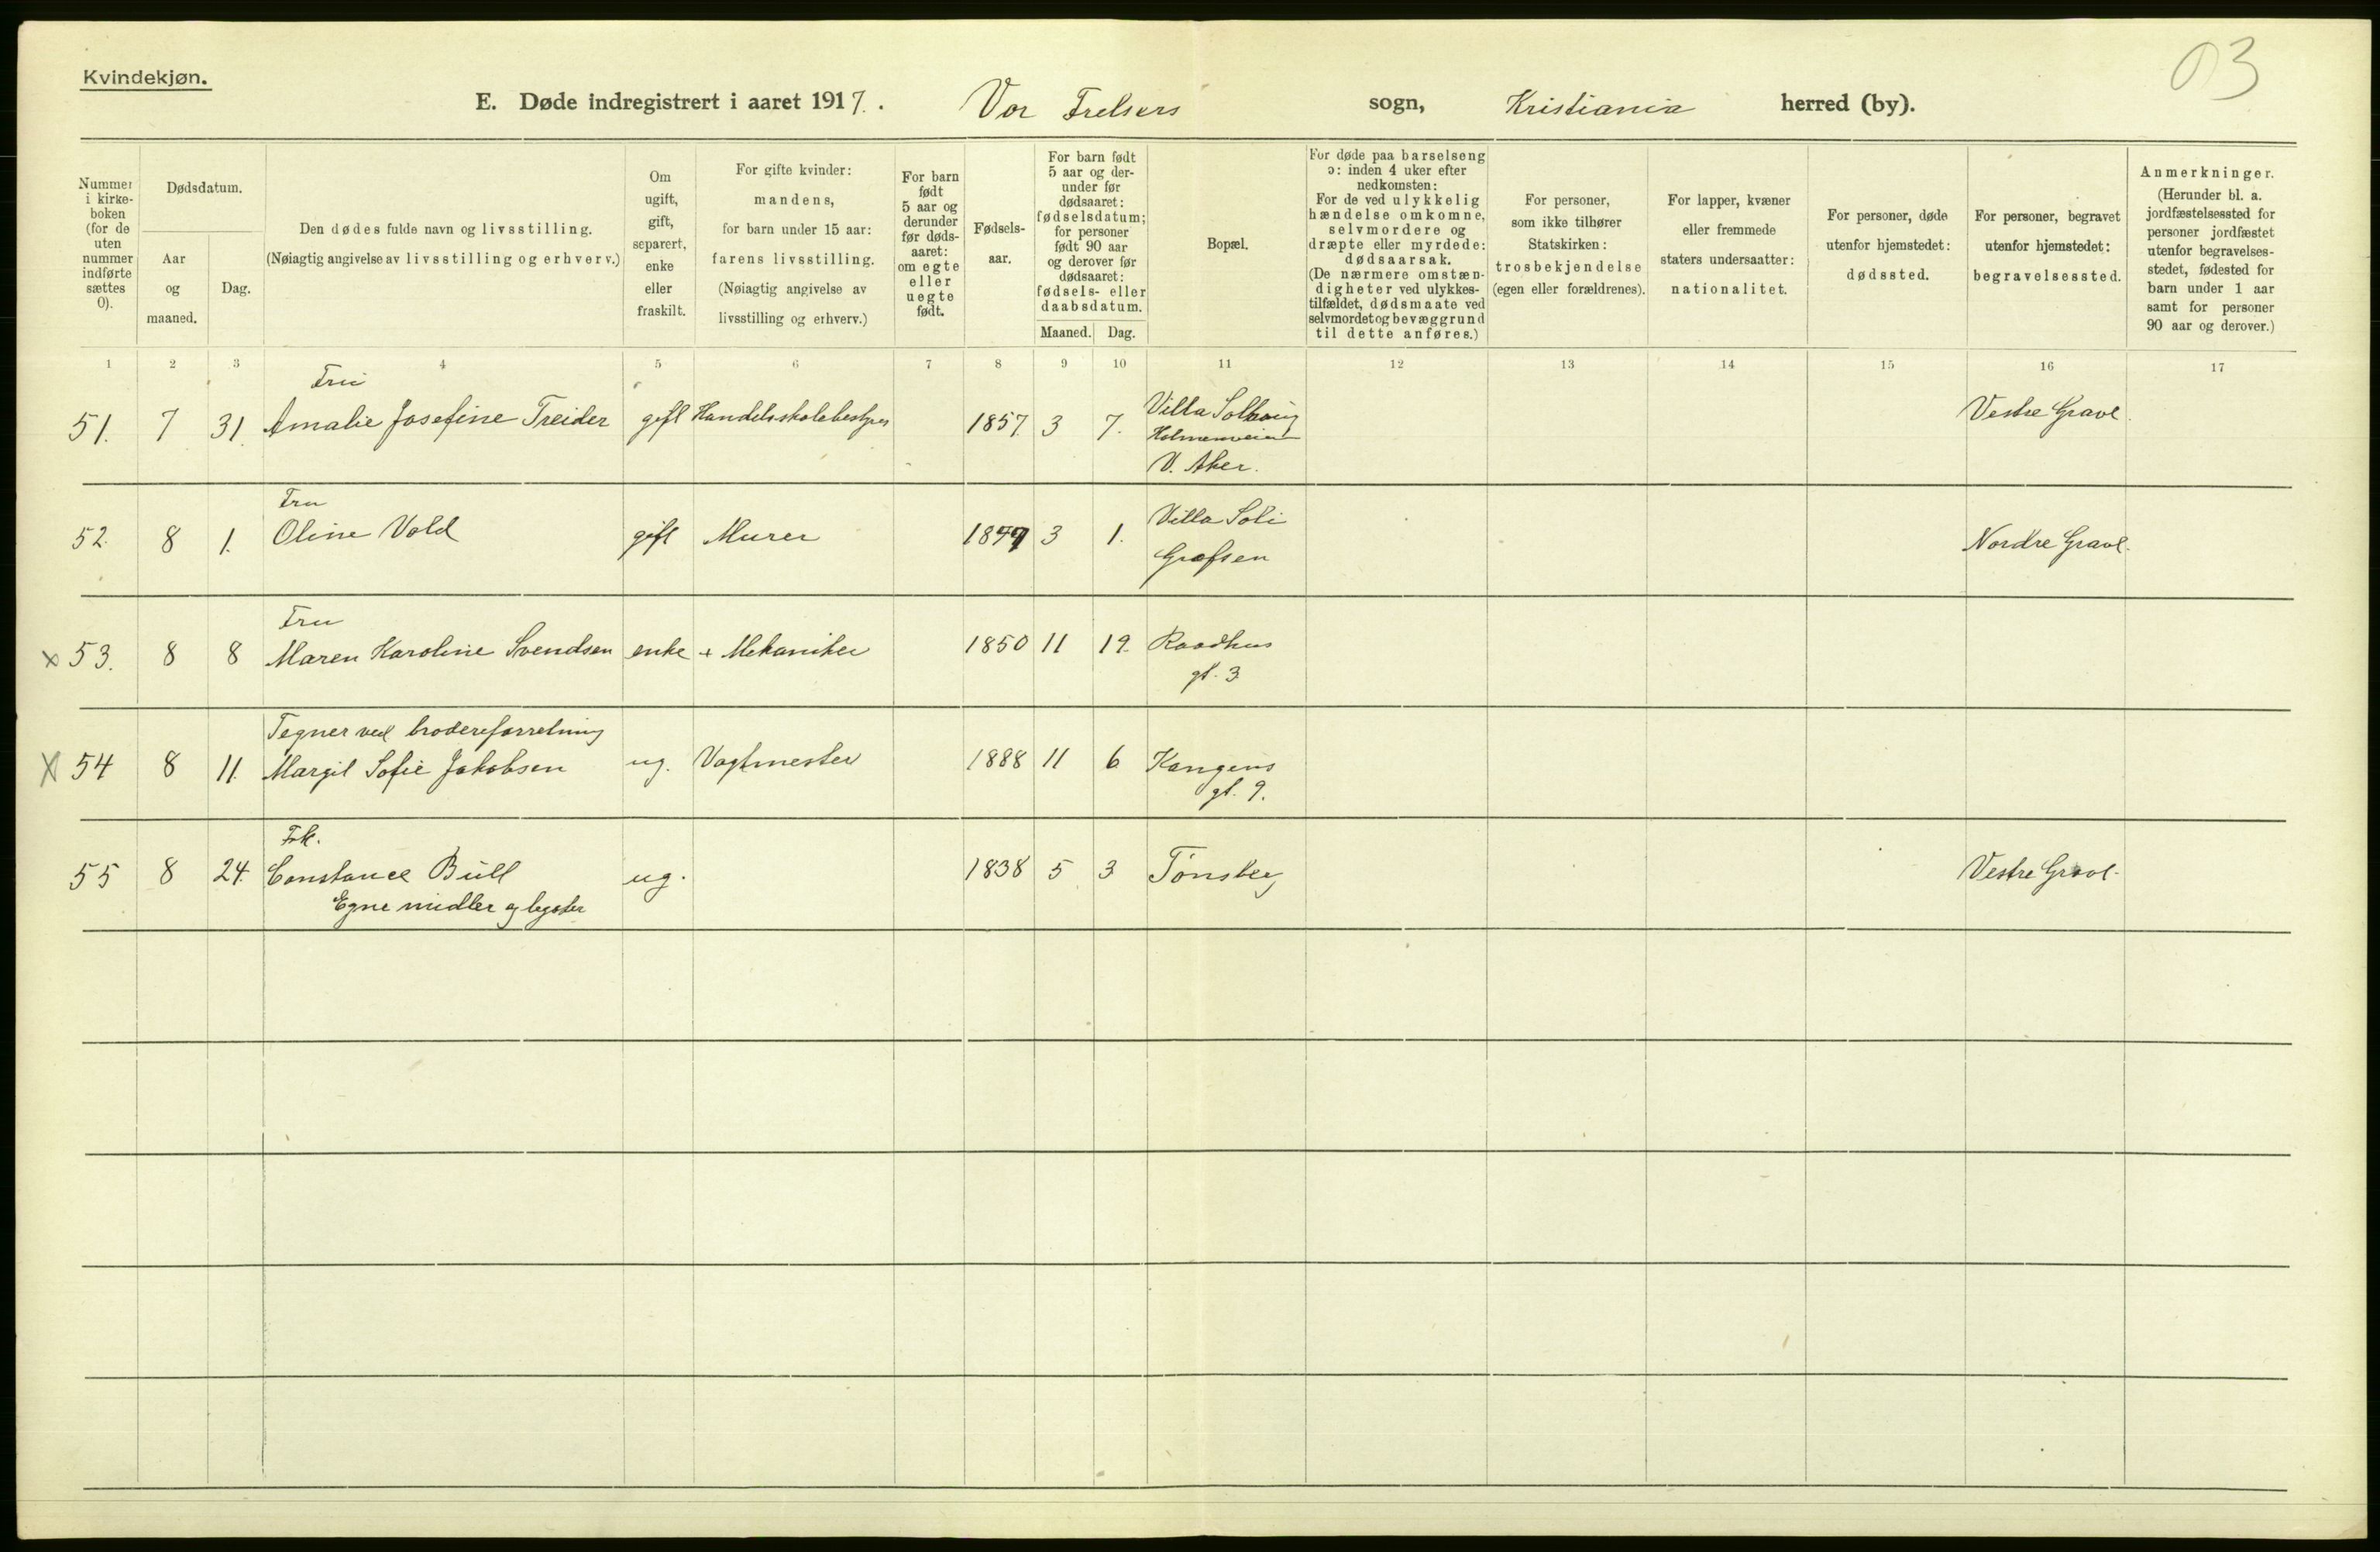 Kvindekjøn.
03
E. Døde indregistrert i aaret 1917. Vor Frelsers sogn, Kristiania herred (by).
Nummer i kirke-boken (for de uten nummer indførte sættes 0).
Dødsdatum.
Aar og maaned.
Dag.
Den dødes fulde navn og livsstilling.
(Nøiagtig angivelse av livsstilling og erhverv.)
Om ugift, gift, separert, enke eller fraskilt.
For gifte kvinder:
mandens,
for barn under 15 aar:
farens livsstilling.
(Nøiagtig angivelse av
livsstilling og erhverv.)
For barn født 5 aar og derunder før døds-aaret: om egte eller uegte født.
Fødsels-aar.
For barn født 5 aar og der-under før dødsaaret: fødselsdatum; for personer født 90 aar og derover før dødsaaret: fødsels- eller daabsdatum.
Maaned. Dag.
Bopæl.
For døde paa barselseng
ɔ: inden 4 uker efter
nedkomsten:
For de ved ulykkelig
hændelse omkomne,
selvmordere og
dræpte eller myrdede:
dødsaarsak.
(De nærmere omstæn-
digheter ved ulykkes-
tilfældet, dødsmaate ved
selvmordet og bevæggrund
til dette anføres.)
For personer,
som ikke tilhører
Statskirken:
trosbekjendelse
(egen eller forældrenes).
For lapper, kvæner
eller fremmede
staters undersaatter:
nationalitet.
For personer, døde
utenfor hjemstedet:
dødssted.
For personer, begravet
utenfor hjemstedet:
begravelsessted.
Anmerkninger.
(Herunder bl. a.
jordfæstelsessted for
personer jordfæstet
utenfor begravelses-
stedet, fødested for
barn under 1 aar
samt for personer
90 aar og derover.)
1 2 3 4 5 6 7 8 9 10 11 12 13 14 15 16 17
Fru
51. 7 31. Amalie Josefine Treider gift Handelsskolebestyrer 1857. 3 7. Villa Solhaug Vestre Gravl.
Holmenveien
V. Aker.
Fru
52. 8 1. Oline Vold gift Murer 3 1. Villa Soli Nordre Gravl.
Grefsen
Fru
x 53. 8 8 Maren Karoline Svendsen enke + Mekaniker 1850 11 19. Raadhus
gt. 3
Tegner ved brodereforretning
X 54 8 11. Margit Sofie Jakobsen ug. Vagtmester 1888 11 6 Kongens
gt. 9.
Frk.
55 8 24. Constance Bull ug. 1838 5 3 Tønsberg Vestre Gravl.
Egne midler og legater